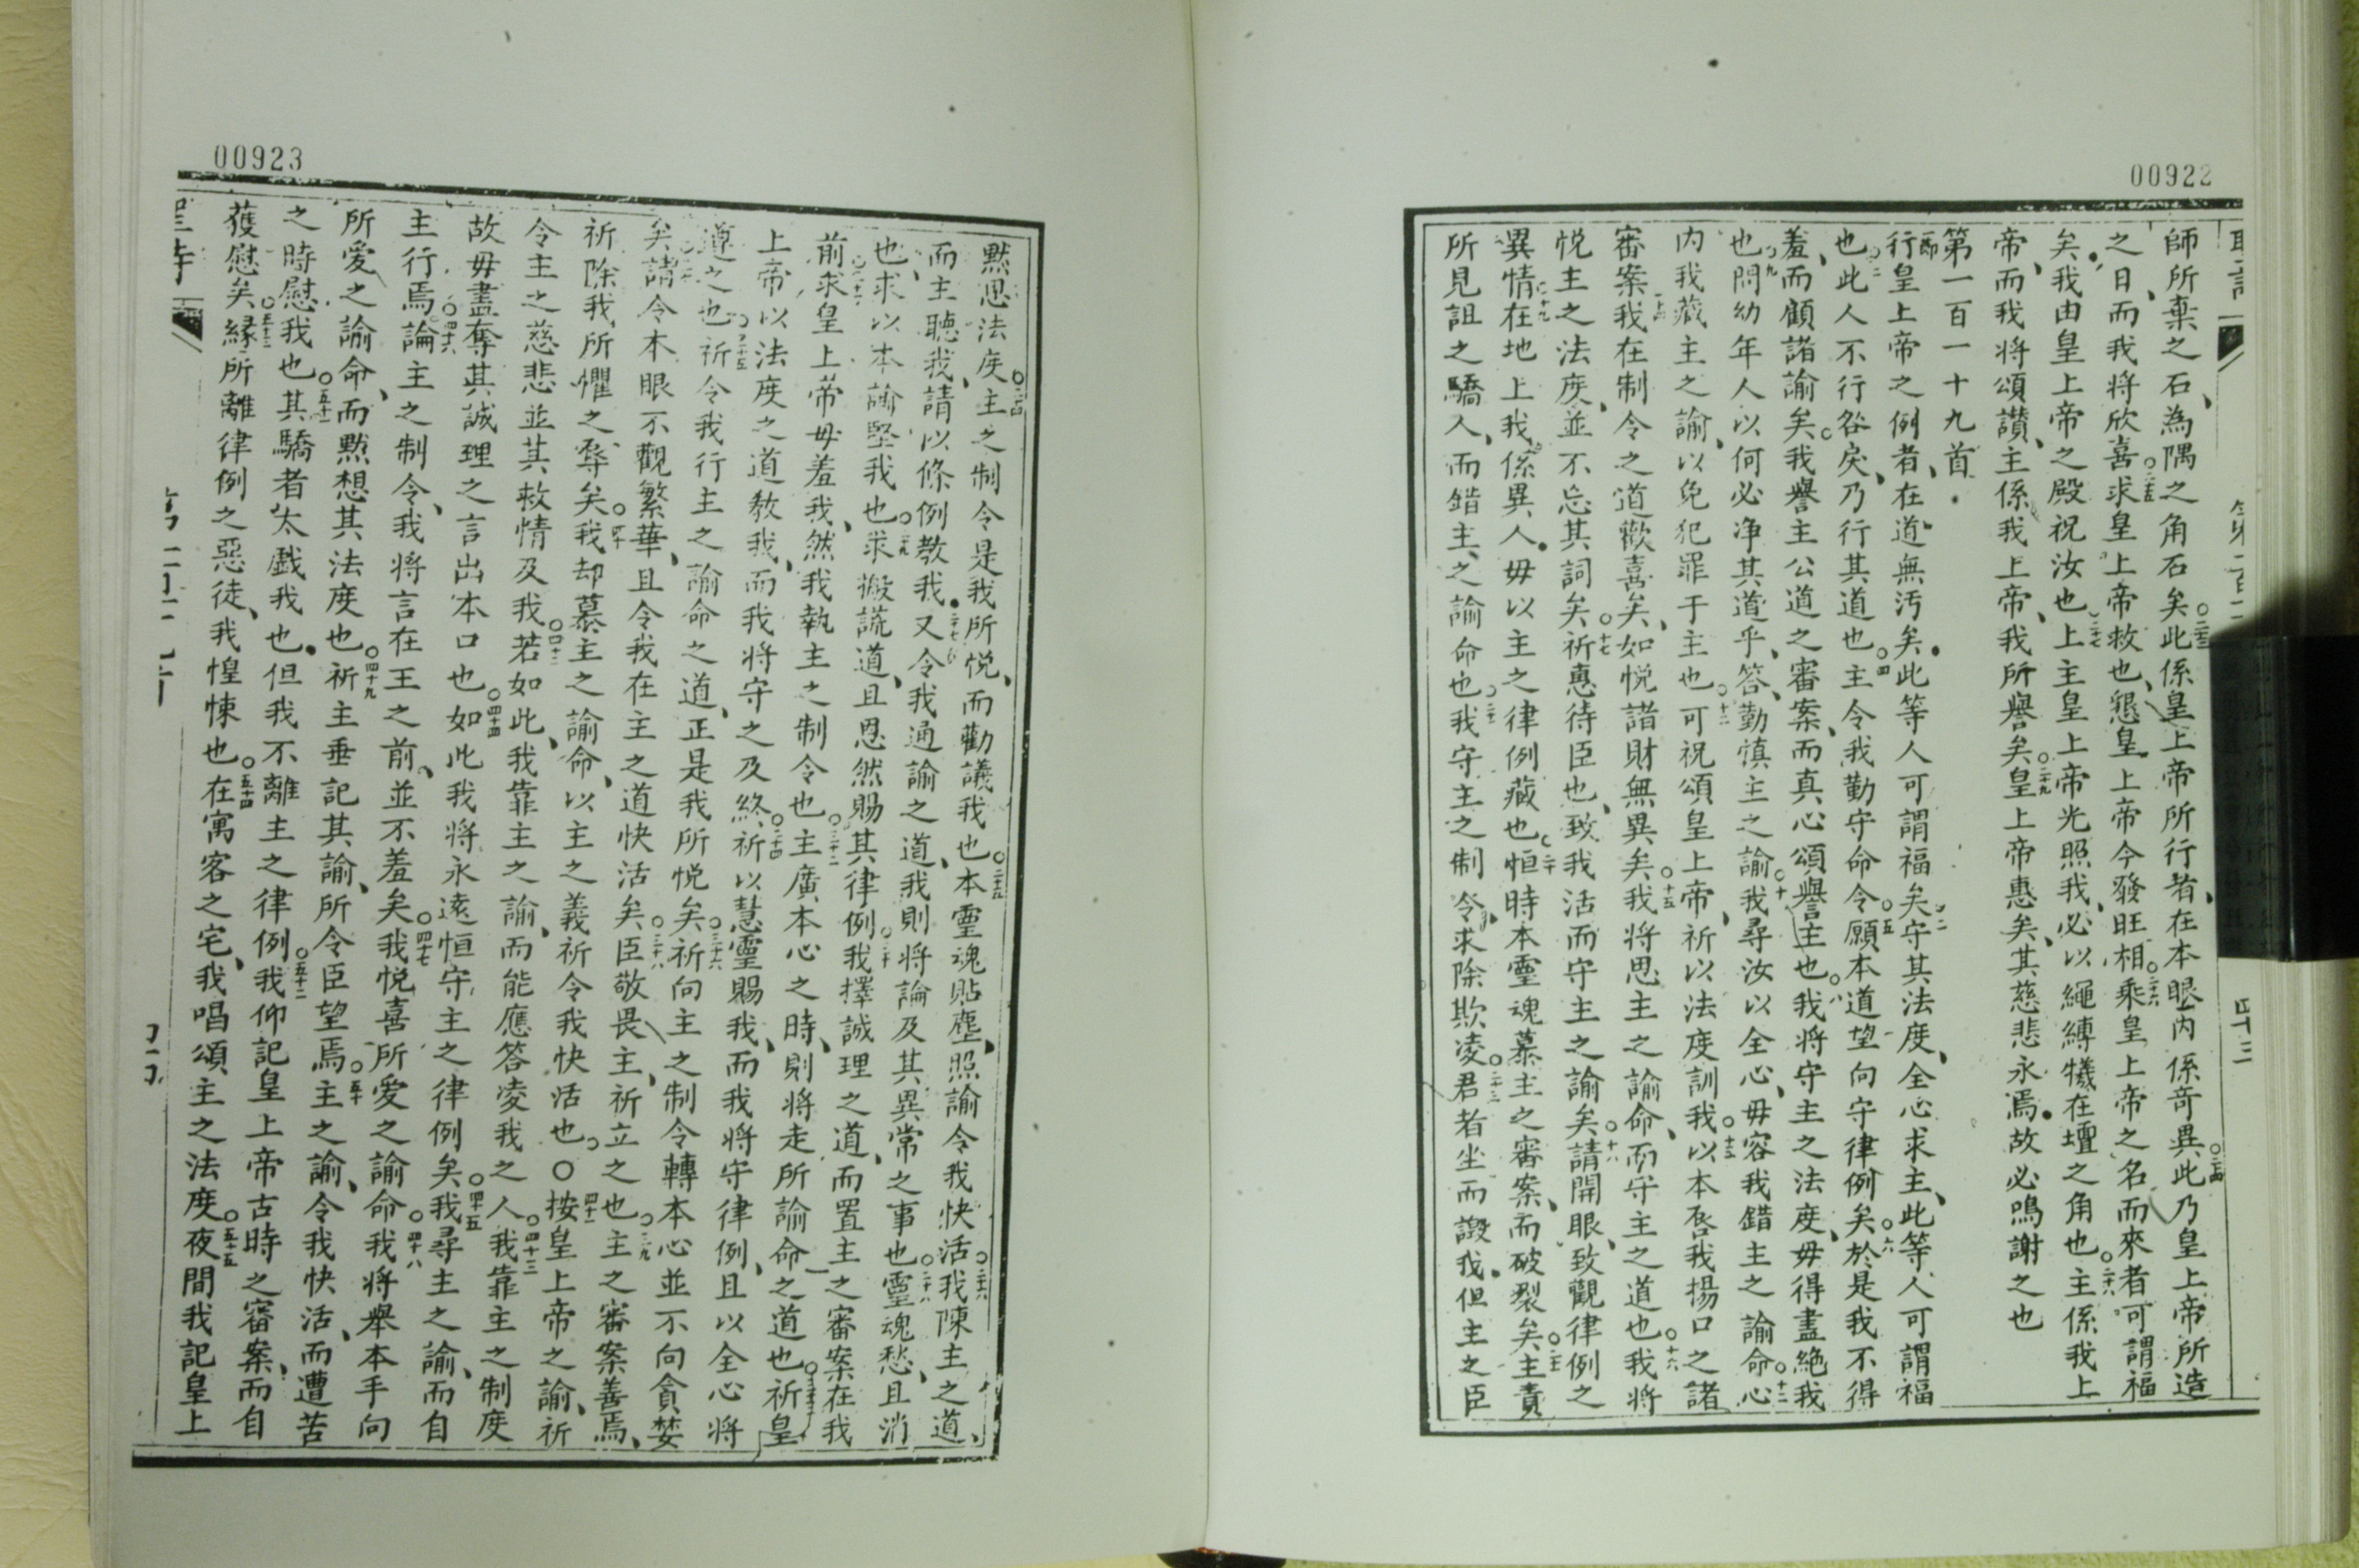 00922
師所棄之石、為隅之角石矣此係皇上帝所行者、在本眼內係奇異此乃皇上帝所造
之日、而我將欣喜求皇上帝救也、懇皇上帝今發旺相乘皇上帝之名而來者可謂福
矣、我由皇上帝之殿祝汝也上主皇上帝光照我、必以繩縛犧在壇之角也主係我上
帝、而我將頌讚、主係我上帝、我所譽矣皇上帝惠矣、其慈悲永焉故必鳴謝之也
第一百一十九首
行皇上帝之例者、在道無污矣此等人可謂福矣守其法度、全心求主、此等人可謂福
也此人不行咎戾、乃行其道也主令我勤守命令願本道望向守律例矣於是我不得
羞、而顧諸諭矣我譽主公道之審案、而真心頌譽主也我將守主之法度、毋得盡絕我
也問幼年人以何必净其道乎、答、勤慎主之諭我尋汝以全心、毋容我錯主之諭命心
內我藏主之諭、以免犯罪于主也可祝頌皇上帝、祈以法度訓我以本唇我揚口之諸
審案我在制令之道歡喜矣、如悅諸財無異矣我將思主之諭命、而守主之道也我將
悅主之法度、並不忘其詞矣祈惠待臣也、致我活而守主之諭矣請開眼、致觀律例之
異情在地上我係異人毋以主之律例藏也恒時本靈魂慕主之審案、而破裂矣主責
所見詛之驕人、而錯主之諭命也我守主之制令求除欺凌君者坐而譭我但主之臣
00923
默思法度主之制令是我所悅、而勸議我也本靈魂貼塵、照諭令我快活我陳主之道、
而主聽我、請以條例教我又令我通諭之道、我則將論及其異常之事也靈魂愁、且消
也、求以本諭堅我也求搬謊道、且恩然賜其律例我擇誠理之道、而置主之審案在我
前求皇上帝毋羞我、然我執主之制令也主廣本心之時、則將走所諭命之道也祈皇
上帝以法度之道教我、而我將守之及終祈以慧靈賜我、而我將守律例、且以全心將
遵之也祈令我行主之諭命之道、正是我所悅矣祈向主之制令轉本心並不向貪婪
矣請令本眼不觀繁華、且令我在主之道快活矣臣敬畏主、祈立之也主之審案善焉、
祈除我所懼之辱矣我却慕主之諭命、以主之義祈令我快活也○按皇上帝之諭、祈
令主之慈悲並其救情及我若如此、我靠主之諭、而能應答凌我之人我靠主之制度
故毋盡奪其誠理之言出本口也如此我將永遠恒守主之律例矣我尋主之諭、而自
主行焉論主之制令、我將言在王之前、並不羞矣我悅喜所愛之諭命我將舉本手向
所愛之諭命、而默想其法度也祈主垂記其諭、所令臣望焉主之諭、令我快活、而遭苦
之時慰我也其驕者太戲我也但我不離主之律例我仰記皇上帝古時之審案、而自
獲慰矣緣所離律例之惡徒、我惶悚也在寓客之宅、我唱頌主之法度夜間我記皇上